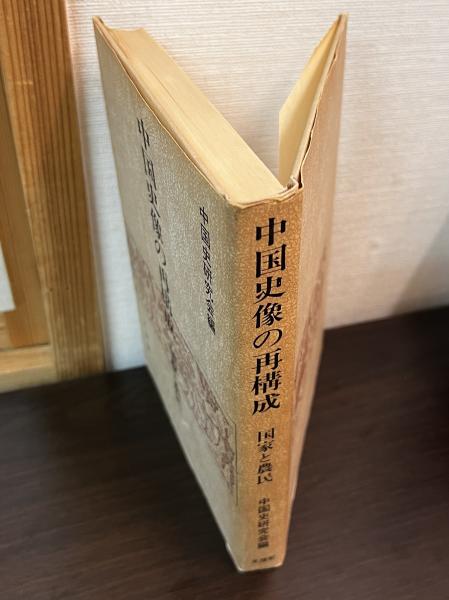 中国史像の再構成
国家と農民
中国史研究会編
中国史像の再構成
中国史研究会編